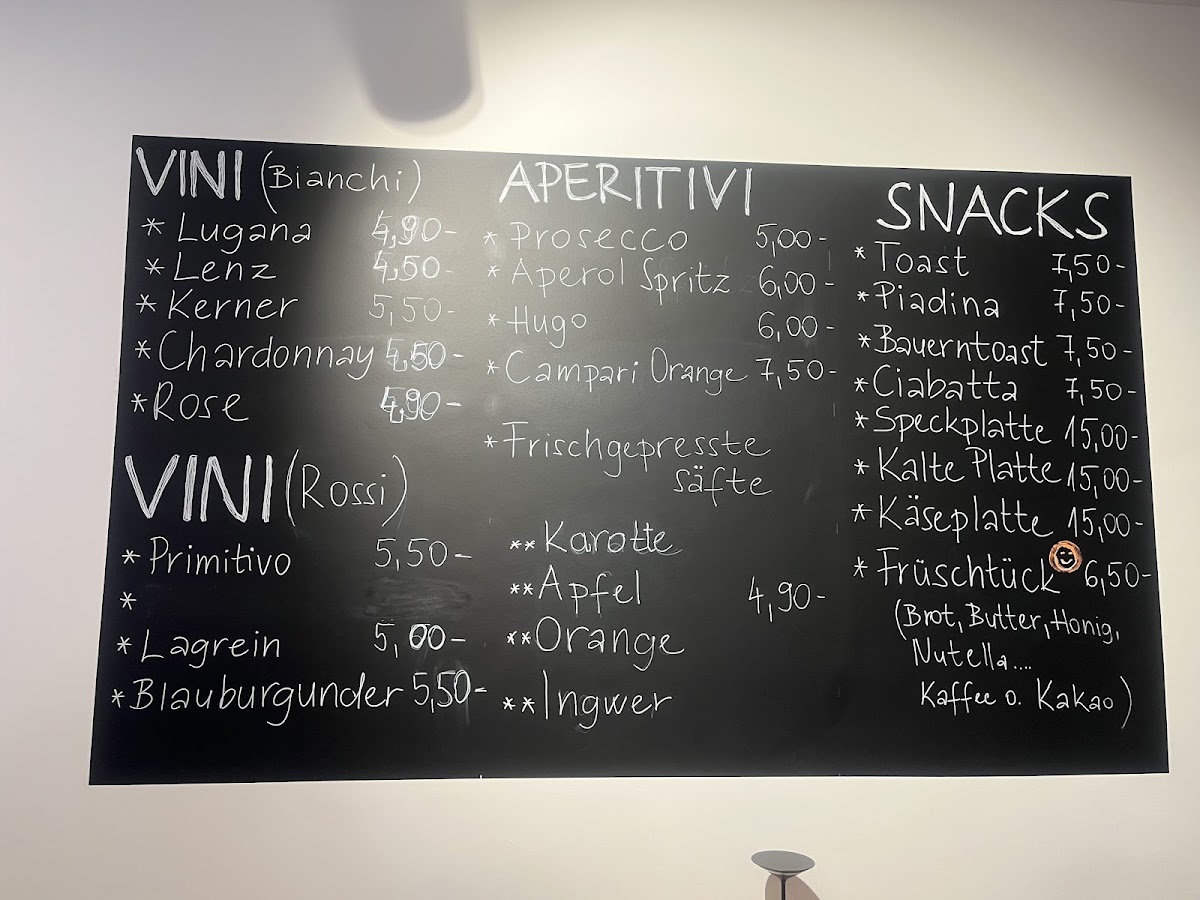 VINI (Bianchi)
* Lugana 4,90-
* Lenz 4,50-
* Kerner 5,50-
* Chardonnay
* Rose 4,90-
VINI (Rossi)
* Primitivo 5,50-
*
* Lagrein 5,00-
* Blauburgunder 5,50-
APERITIVI
* Prosecco 5,00-
* Aperol Spritz 6,00-
* Hugo 6,00-
* Campari Orange 7,50-
* Frischgepresste
säfte
** Karotte
** Apfel 4,90-
** Orange
** Ingwer
SNACKS
* Toast 7,50-
* Piadina 7,50-
* Bauerntoast 7,50-
* Ciabatta 7,50-
* Speckplatte 15,00-
* Kalte Platte 15,00-
* Käseplatte 15,00-
* Früschtück 6,50-
(Brot, Butter, Honig,
Nutella....
Kaffee o. Kakao)